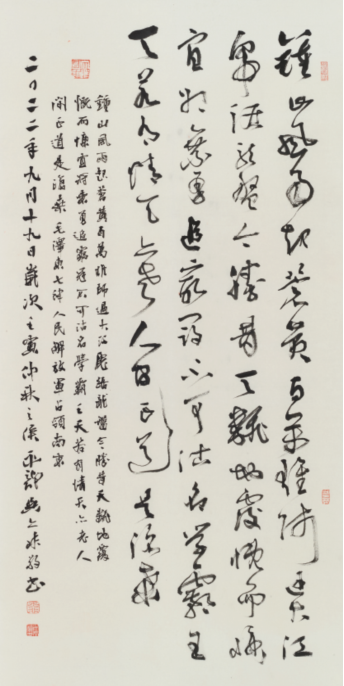 鍾山風雨起蒼黃百萬雄師過大江
虎踞龍盤今勝昔天翻地覆慨而慷
宜將剩勇追窮寇不可沽名學霸王
天若有情天亦老人間正道是滄桑
鍾山風雨起蒼黃百萬雄師過大江虎踞龍盤今勝昔天翻地覆
慨而慷宜將剩勇追窮寇不可沽名學霸王天若有情天亦老人
間正道是滄桑 毛澤東七律人民解放軍占領南京
二〇二二年九月十九日歲次壬寅仲秋之侯